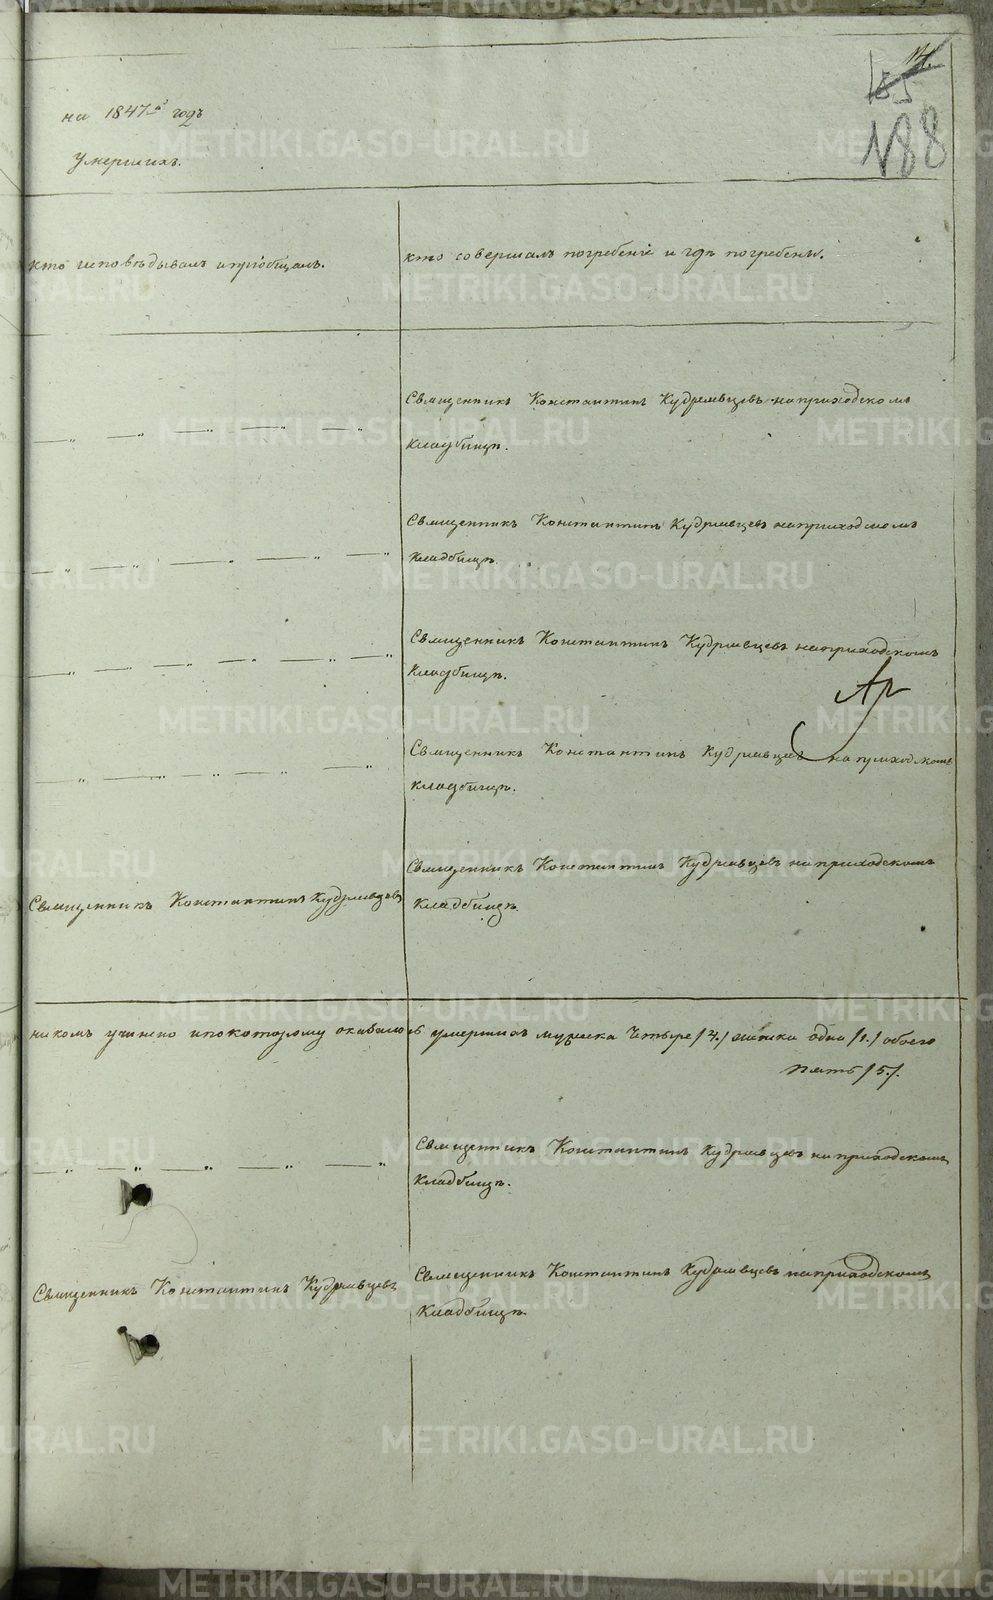 14.
155
188
на 1847й годъ
Умершихъ.
кто исповѣдывалъ и пріобщалъ.
кто совершалъ погребеніе и гдѣ погребены.
Священникъ Константинъ Кудрявцевъ на приходскомъ
кладбищѣ.
Священникъ Константинъ Кудрявцевъ на приходскомъ
кладбищѣ.
Священникъ Константинъ Кудрявцевъ на приходскомъ
кладбищѣ.
Священникъ Константинъ Кудрявцевъ на приходскомъ
кладбищѣ.
Священникъ Константинъ Кудрявцевъ
Священникъ Константинъ Кудрявцевъ на приходскомъ
кладбищѣ.
никомъ учинено и по которому оказалось умершихъ мужеска четыре /4./ женска одна /1./ обоего
пять /5./.
Священникъ Константинъ Кудрявцевъ на приходскомъ
кладбищѣ.
Священникъ Константинъ Кудрявцевъ
Священникъ Константинъ Кудрявцевъ на приходскомъ
кладбищѣ.
METRIKI.GASO-URAL.RU